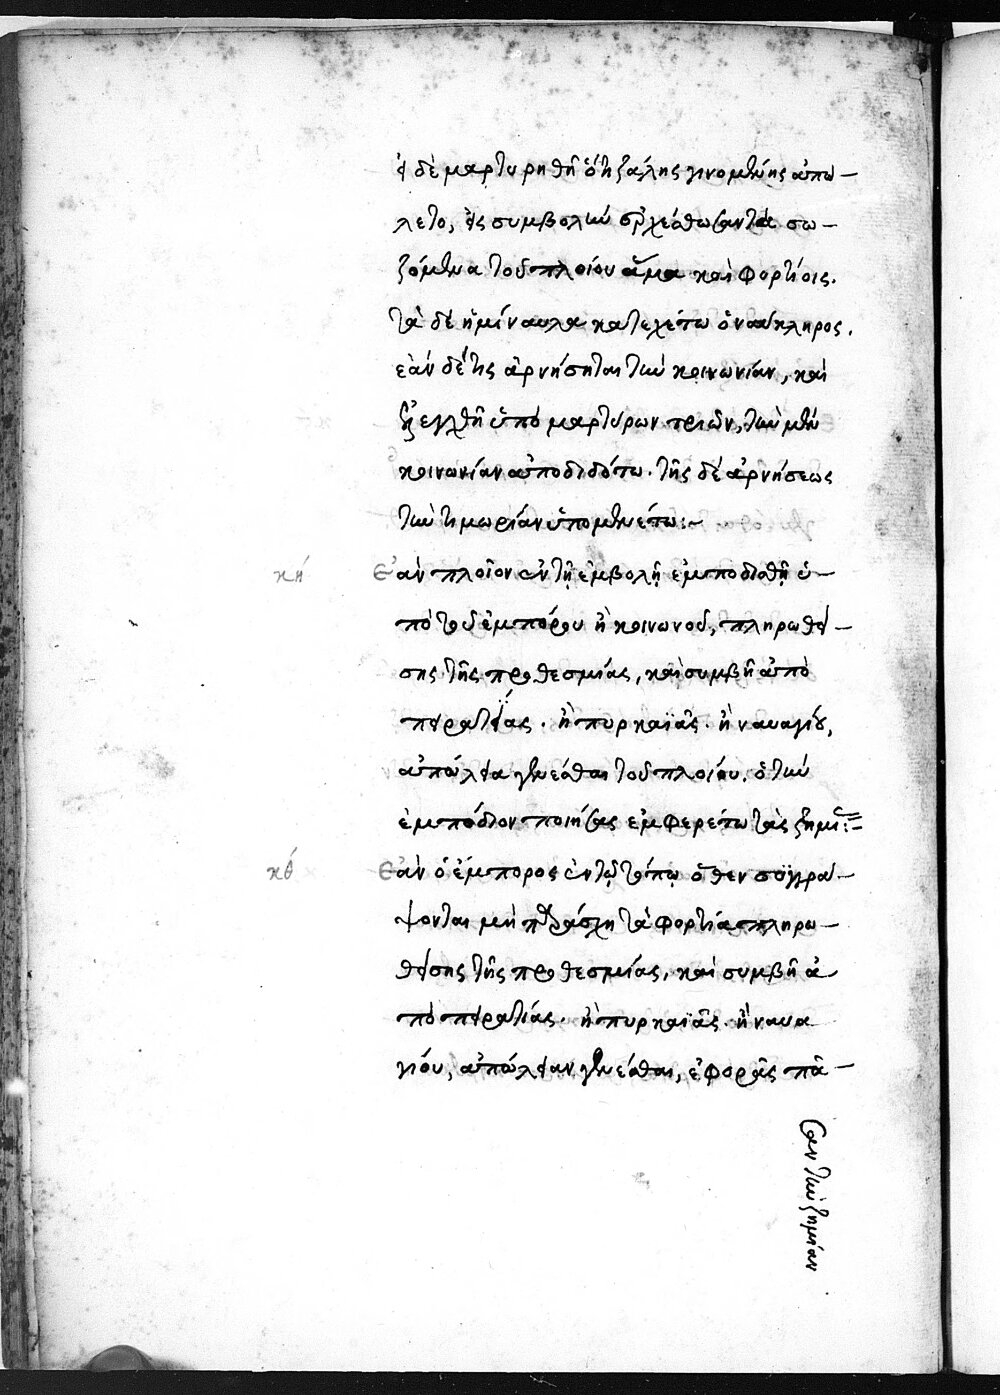 εἰ δὲ μαρτυρηθῆ ὅτι ζάλης γινομένης ἀπώ-
λετο, εἰς συμβολὴν ἐρχέσθωσαν τὰ σω-
ζόμενα τοῦ πλοίου ἅμα καὶ φορτίοις.
τὰ δὲ ἡμίναυλα κατεχέτω ὁ ναύκληρος.
ἐὰν δέ τις ἀρνήσηται τὴν κοινωνίαν, καὶ
ἐξελεγχθῆ ὑπὸ μαρτύρων τριῶν, τὴν μὲν
κοινωνίαν ἀποδιδότω. τῆς δὲ ἀρνήσεως
τὴν τιμωρίαν ὑπομενέτω:~
κη Ἐὰν πλοῖον ἐν τῇ ἐμβολῇ ἐμποδισθῇ ὑ-
πὸ τοῦ ἐμπόρου ἢ κοινωνοῦ, πληρωθεί-
σης τῆς προθεσμίας, καὶ συμβῆ ἀπὸ
πειρατείας. ἢ πυρκαϊᾶς. ἢ ναυαγίου,
ἀπώλεια γενέσθαι τοῦ πλοίου. ὁ τὴν
ἐμπόδιον ποιήσας εἰσφερέτω τὰς ζημί:=
κθ Ἐὰν ὁ ἔμπορος ἐν τῷ τόπῳ ὅθεν συγγρά-
ψονται μὴ παράσχη τὰ φορτία πληρω-
θείσης τῆς προθεσμίας, καὶ συμβῆ ἀ-
πὸ πειρατίας. ἢ πυρκαϊᾶς. ἢ ναυα
γίου, ἀπώλειαν γενέσθαι, ἐφορᾶς πᾶ-
σαν τὴν ζημίαν